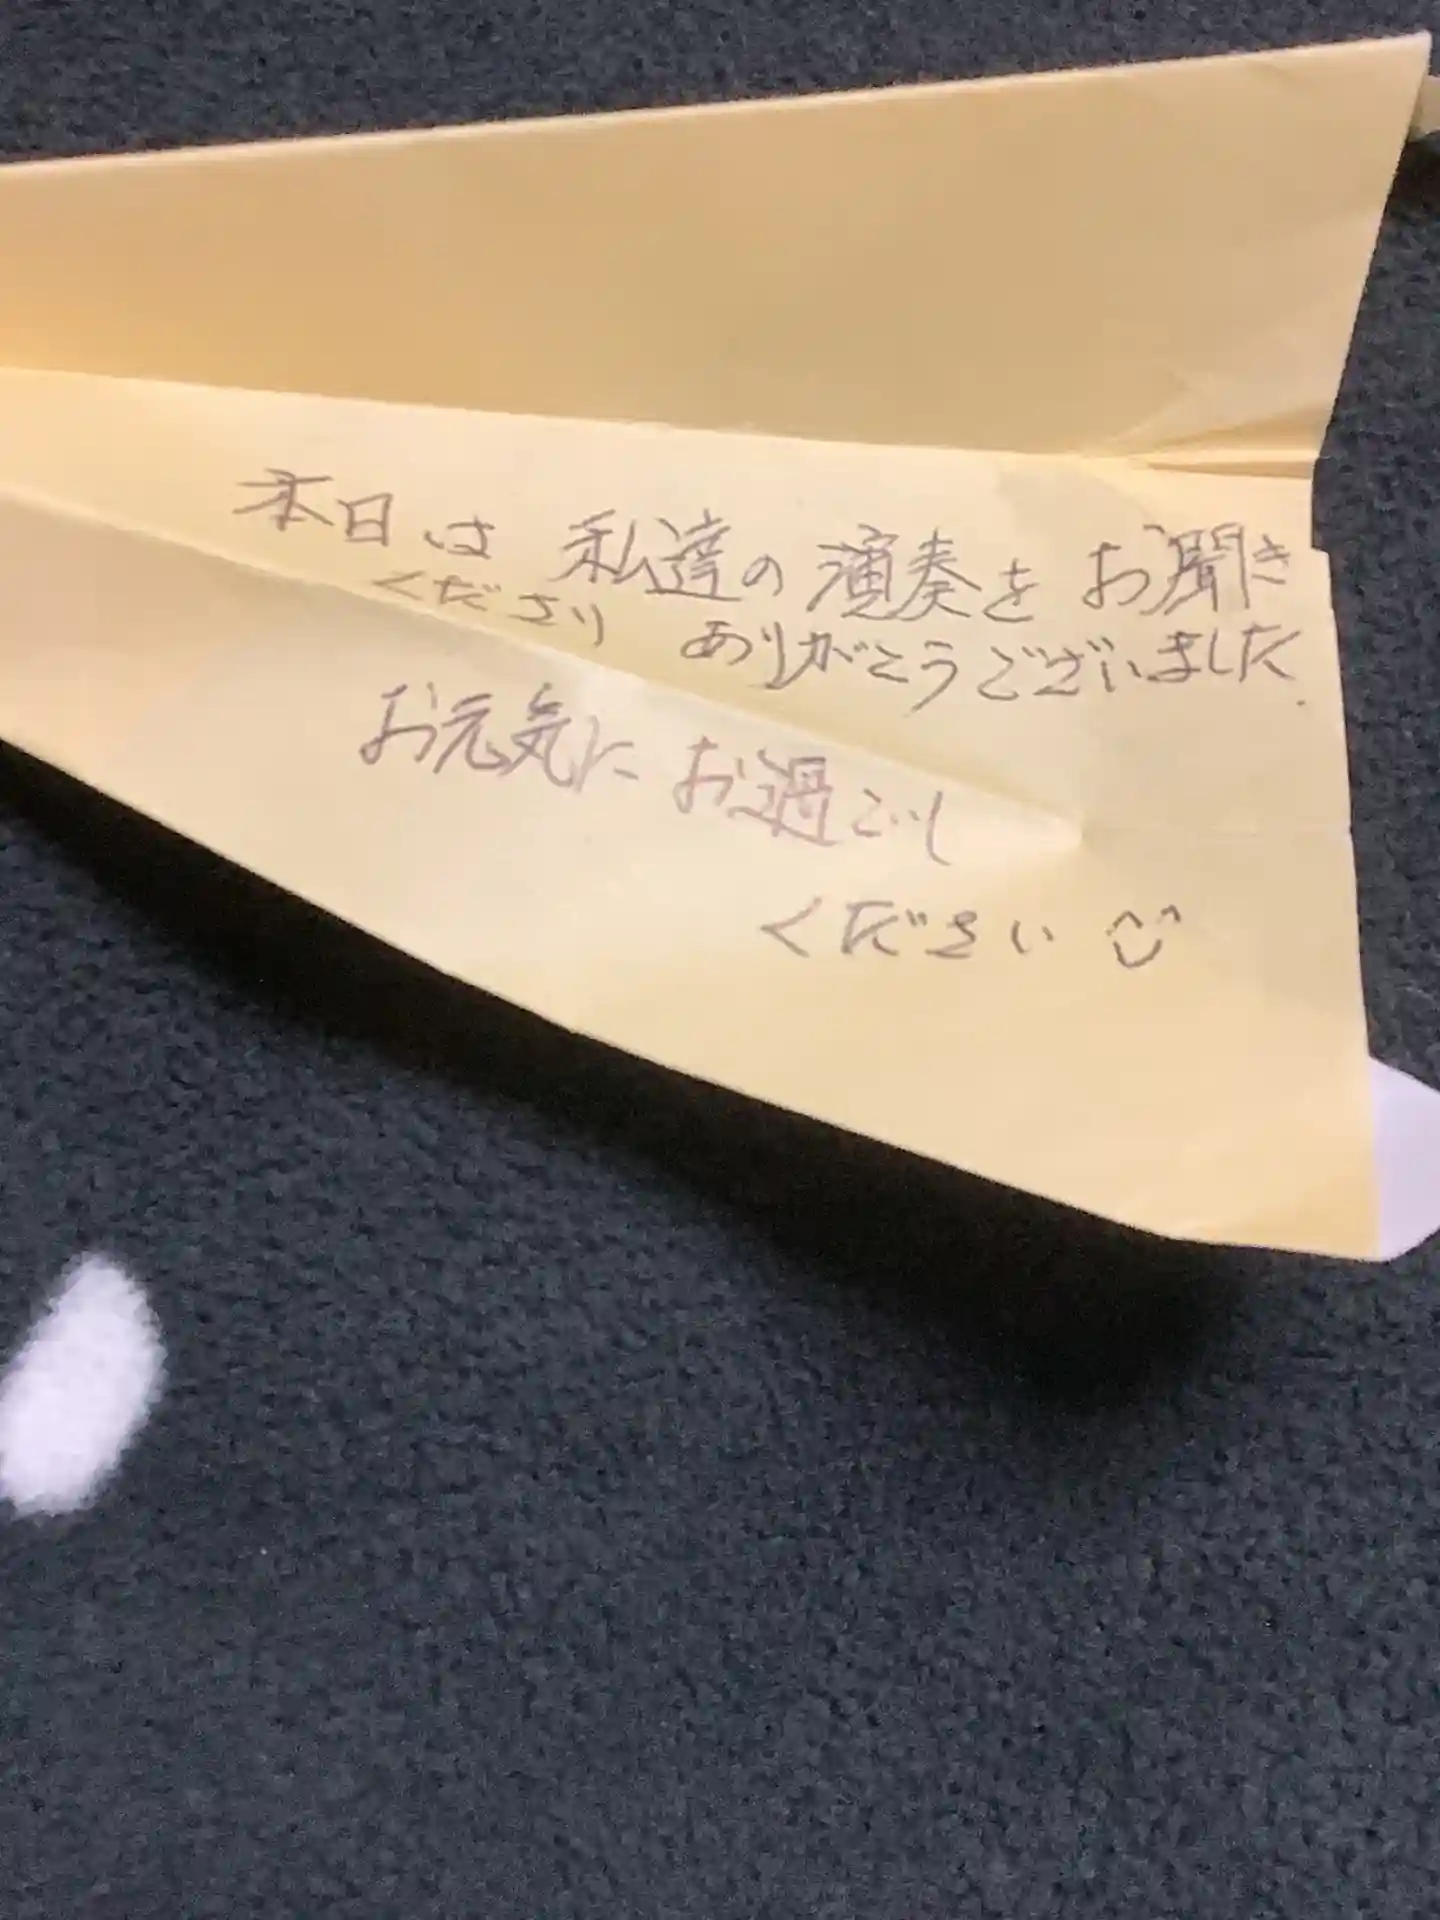 本日は 私達の演奏をお聞き
くださり ありがとうございました.
お元気に お過ごし
ください